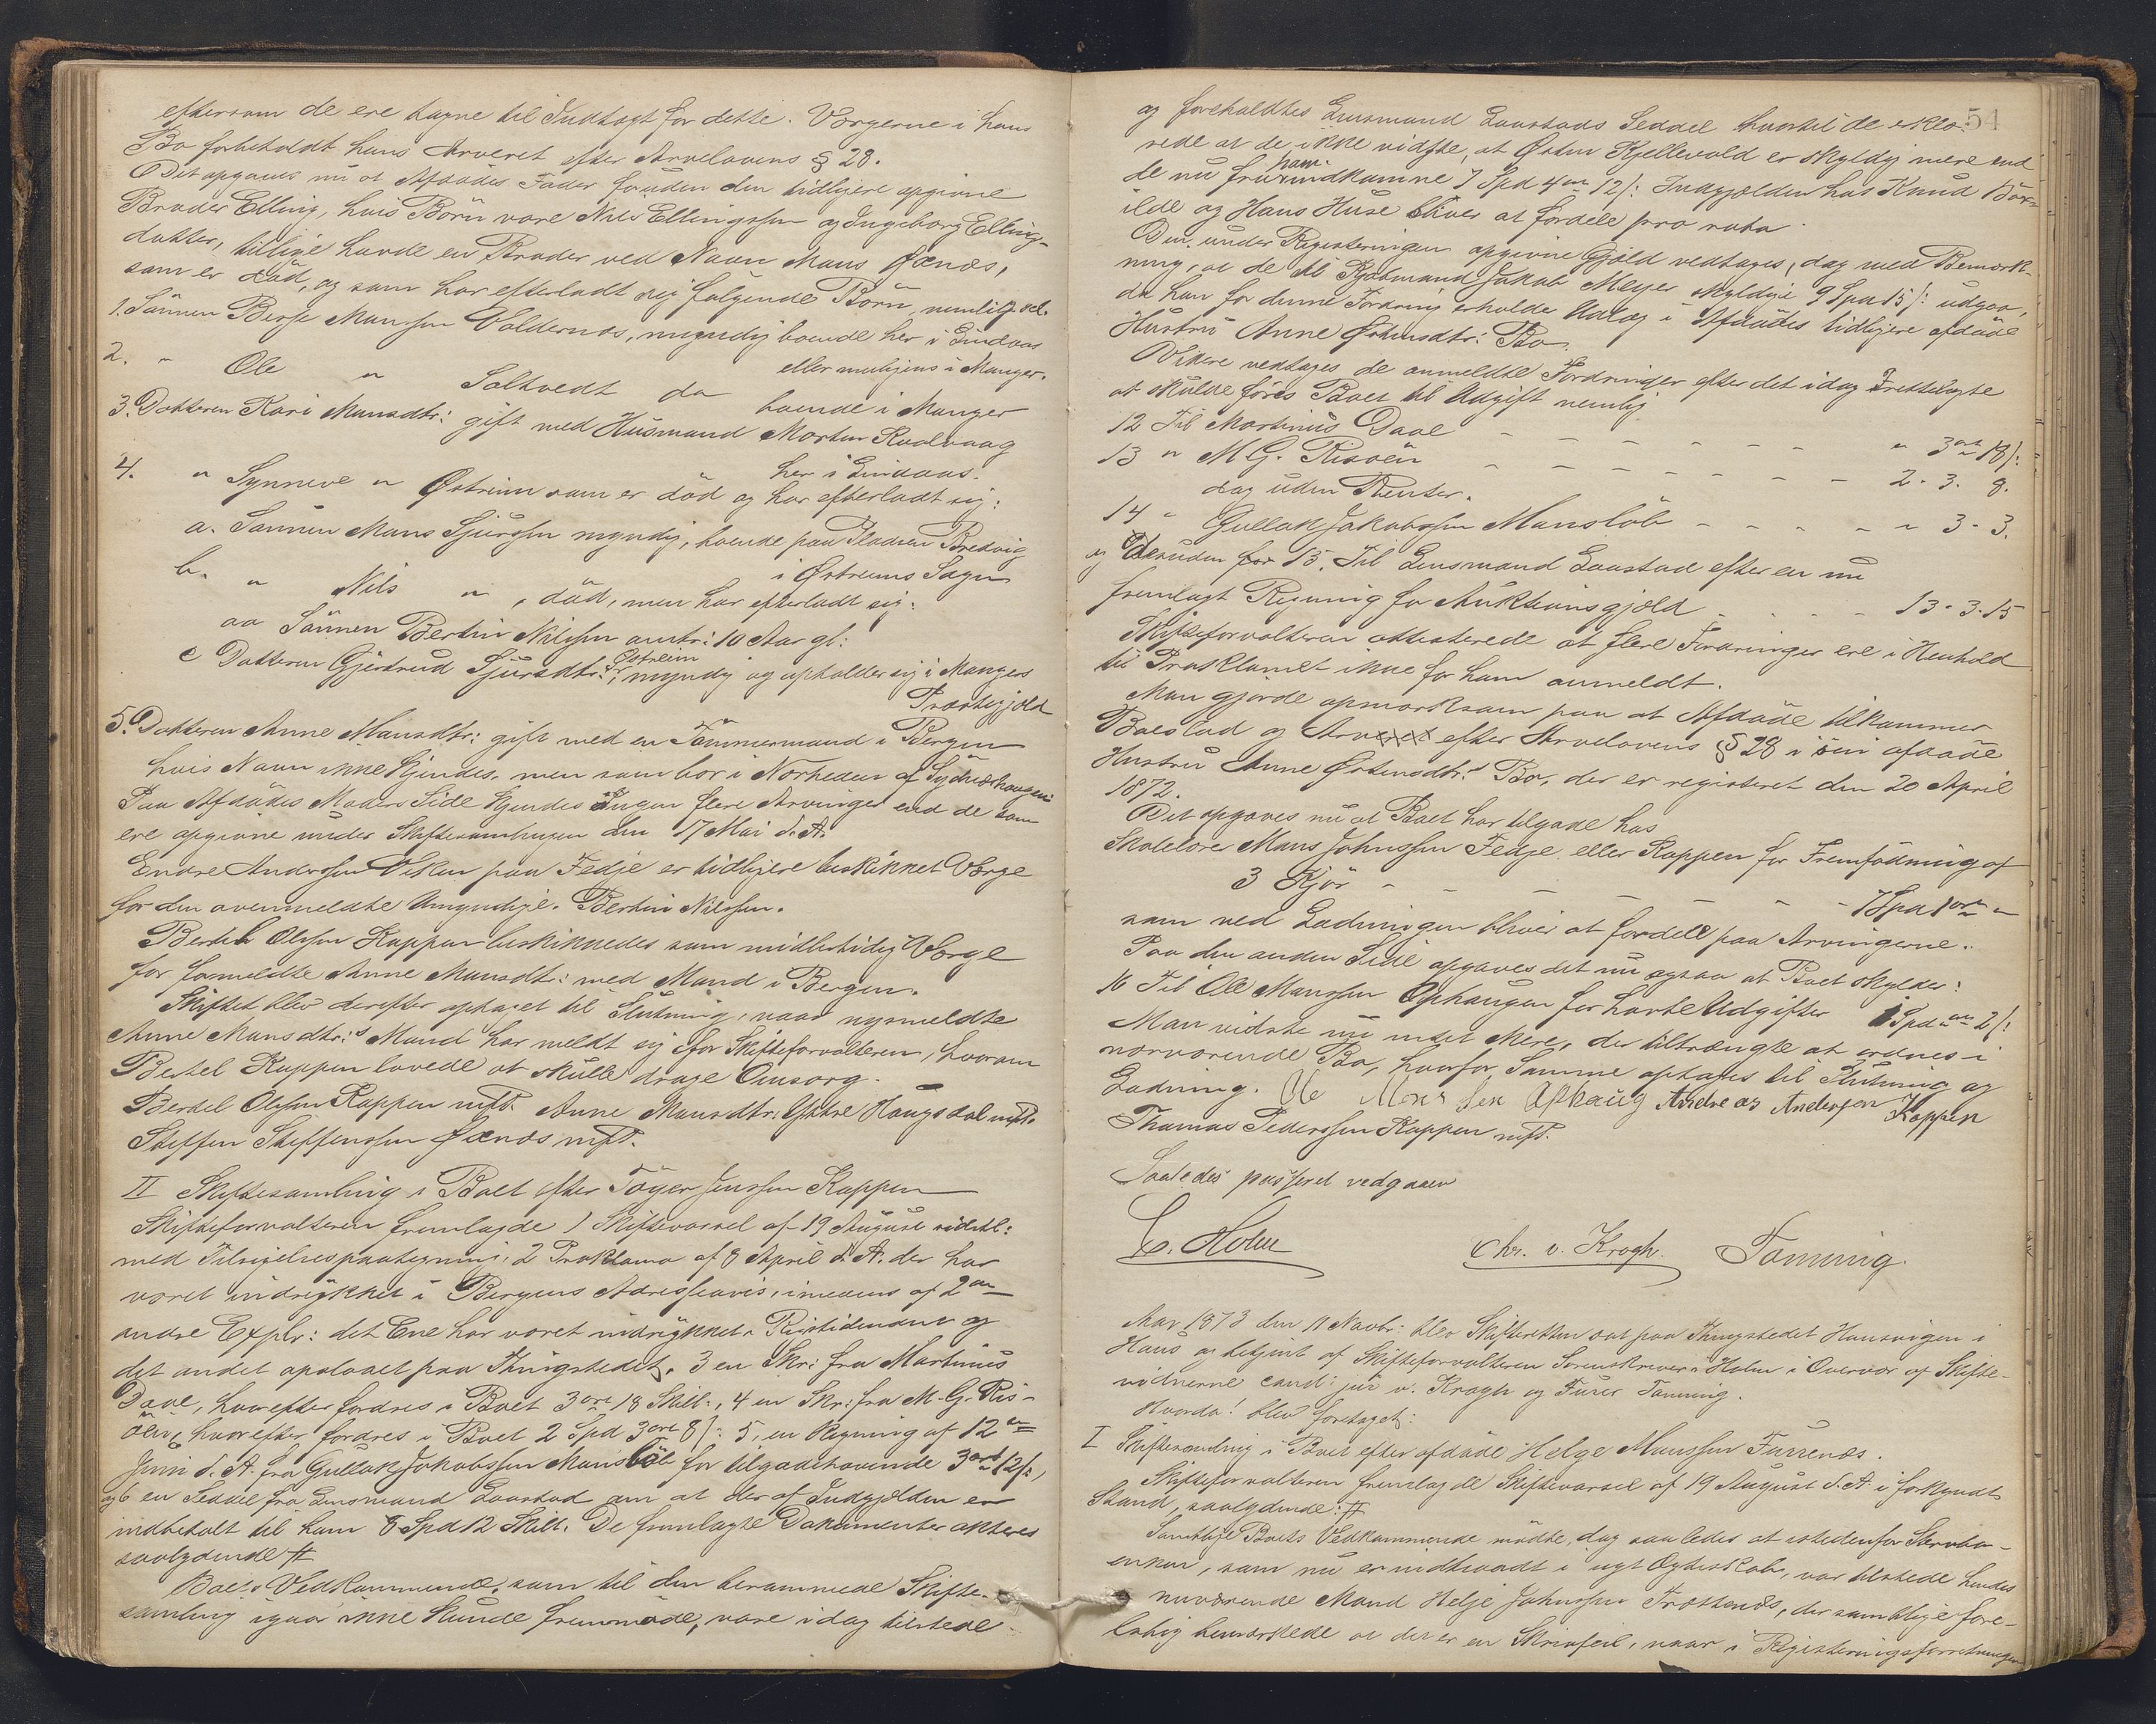 eftersom de ere tagne til Indtægt for dette. Værgerne i hans
Bo forbeholdt hans Arveret efter Arvelovens § 28.
Det opgaves nu at Afdødes Fader foruden den tidligere opgivne
Broder Elling, hvis Børn vare Nils Ellingssen og Ingeborg Ellings-
datter, tillige havde en Broder ved Navn Mons Øxnæs,
som er død, og som har efterladt sig følgende Børn, nemlig
1. Sønnen Berge Monssen Valdersnæs, myndig boende her i Lindaas
eller muligens i Manger.
2. " Ole " Soltvedt do boende i Manger
3. Datteren Kari Monsdtr: gift med Husmand Morten Kvalvaag
her i Lindaas.
4. " Synneve " Østreim som er død og har efterladt sig:
a. Sønnen Mons Sjurssen myndig, boende paa Pladsen Bredvig
i Østreims Sogn
b. " Nils " , død, men har efterladt sig:
aa Sønnen Bertin Nilssen omtr: 10 Aar gl:
c Datteren Gjertrud Sjursdtr: Østreim, myndig og opholder sig i Mangers
Præstegjeld
5. Datteren Anne Monsdtr: gift med en Tømmermand i Bergen
hvis Navn ikke kjendes, men som bor i Nærheden af Sydnæshaugen
Paa Afdødes Moders Side kjendes Ingen flere Arvinger end de som
ere opgivne under Skiftesamlingen den 17 Mai d. A.
Endre Anderssen Viken paa Fedje er tidligere beskikket Værge
for den ovenmeldte Umyndige. Bertin Nilssen.
Bertel Olssen Koppen beskikkedes som midlertidig Værge
for formeldte Anne Monsdtr: med Mand i Bergen.
Skiftet blev derefter optaget til Slutning, naar nysmeldte
Anne Monsdtr:s Mand har meldt sig for Skifteforvalteren, hvorom
Bertel Koppen lovede at skulle drage Omsorg.
Bertel Olssen Koppen mpP. Anne Monsdtr: Haugsdal mpP.
Steffen Steffenssen Øxnæs mpP.
II Skiftesamling i Boet efter Tøger Jenssen Koppen
Skifteforvalteren fremlagde 1 Skiftevarsel af 19 August sidstl:
med Tilsigelsespaategning, 2 Proklama af 8 April d. A. der har
været indrykket i Bergens Adresseavis, imedens af 2de
andre Explr: det Ene har været indrykket i Rigstidenden og
det andet oplæset paa Thingstedet, 3 en Skr: fra Martinus
Daae, hvorefter fordres i Boet 3 ort 18 Skill:, 4 en Skr: fra M. G. Ris-
öen, hvorefter fordres i Boet 2 Spd 3 ort 8 /: 5, en Regning af 12te
Juni d. A. fra Gullak Jakobssen Mansløb for tilgodehavende 3 ort 12 /:,
og 6 en Seddel fra Lensmand Laastad om at der af Indgjælden er
indbetalt til ham 8 Spd 12 Skill. De fremlagte Dokumenter akteres
saalydende #
Boets Vedkommende, som til den berammede Skifte-
samling igaar ikke kunde fremmøde, vare idag tilstede
54
og foreholdtes Lensmand Laastads Seddel hvortil de erklæ-
rede at de ikke vidste, at Østen Kjellevold er skyldig mere end
de nu fremkomne 7 Spd 4 ort 12 /: Indgjælden hos Knud Bör-
ilde og Hans Huse bliver at fordele pro rata.
Den under Registeringen opgivne Gjæld vedtages, dog med Bemærk-
ning, at de til Kjøbmand Jakob Meyer skyldige 9 Spd 15 /: udgaa,
da han for denne Fordring erholder Udlæg i Afdødes tidligere afdøde
Hustru Anne Østensdtr: Bo.
Videre vedtages de anmeldte Fordringer efter det idag Fremlagte
at skulde føres Boet til Udgift nemlig
12 Til Martinus Daae - - - - - - " 3 ort 18 /:
13 " M. G. Risöen - - - - - - 2 - 3. 8.
dog uden Renter.
14 - Gullak Jakobssen Mansløb - - - - " 3 - 3.
og desuden for 15. Til Lensmand Laastad efter en nu
fremlagt Regning for Auktionsgjæld - - - - 13 - 3 - 15
Skifteforvalteren attesterede at flere Fordringer ere i Henhold
til Proklamet ikke for ham anmeldt.
Man gjorde opmærksom paa at Afdøde tilkommer
Boeslod og Arv efter Arvelovens § 28 i sin afdøde
Hustru Anne Østensdtr:s Bo, der er registeret den 20 April
1872.
Det opgaves nu at Boet har tilgode hos
Skolelærer Mons Johnssen Fedje eller Koppen for Fremfødning af
3 Kjør - - - - - - 7 Spd 1 ort "
som ved Lodningen bliver at fordele paa Arvingerne.
Paa den anden Side opgaves det nu ogsaa at Boet skylder:
16 Til Ole Monssen Ophaugen for havte Udgifter 1 Spd " ort 2 /:
Man vidste nu intet Mere, der tiltrængte at ordnes i
nærværende Bo, hvorfor Samme optages til Slutning og
Lodning. Ole Mons sen Ophaug Andreas Andersen Koppen
Thomas Pederssen Koppen mpP.
Saaledes passeret vedgaaer
C. Holm Chr. v. Krogh. Tanning.
Aar 1873 den 11 Novbr: blev Skifteretten sat paa Thingstedet Hausvigen i
Haus og betjent af Skifteforvalteren Sorenskriver Holm i Overvær af Skifte-
vidnerne cand: jur v. Krogh og Furer Tanning.
Hvorda! blev foretaget:
I Skiftesamling i Boet efter afdøde Helge Monssen Furrenæs.
Skifteforvalteren fremlagde Skiftevarsel af 19 August d. A. i forkyndt
Stand, saalydende: #
Samtlige Boets Vedkommende mødte, dog saaledes at istedenfor Stervbo-
enken, som nu er indtraadt i nyt Ægteskab, var tilstede hendes
nuværende Mand Helje Johnssen Trættenæs, der samtlige fore-
løbig bemærkede at det er en Skrivfeil, naar i Registeringsforretningen